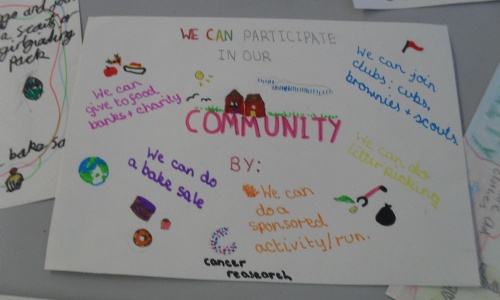 WE CAN PARTICIPATE
IN OUR
COMMUNITY
BY:
We can
give to food
banks + charity
We can join
clubs: cubs,
brownies + scouts
We can do
a bake sale
We can do
litter picking
We can
do a
sponsored
activity/run.
cancer
reasearch
a scout
pack
bake sa